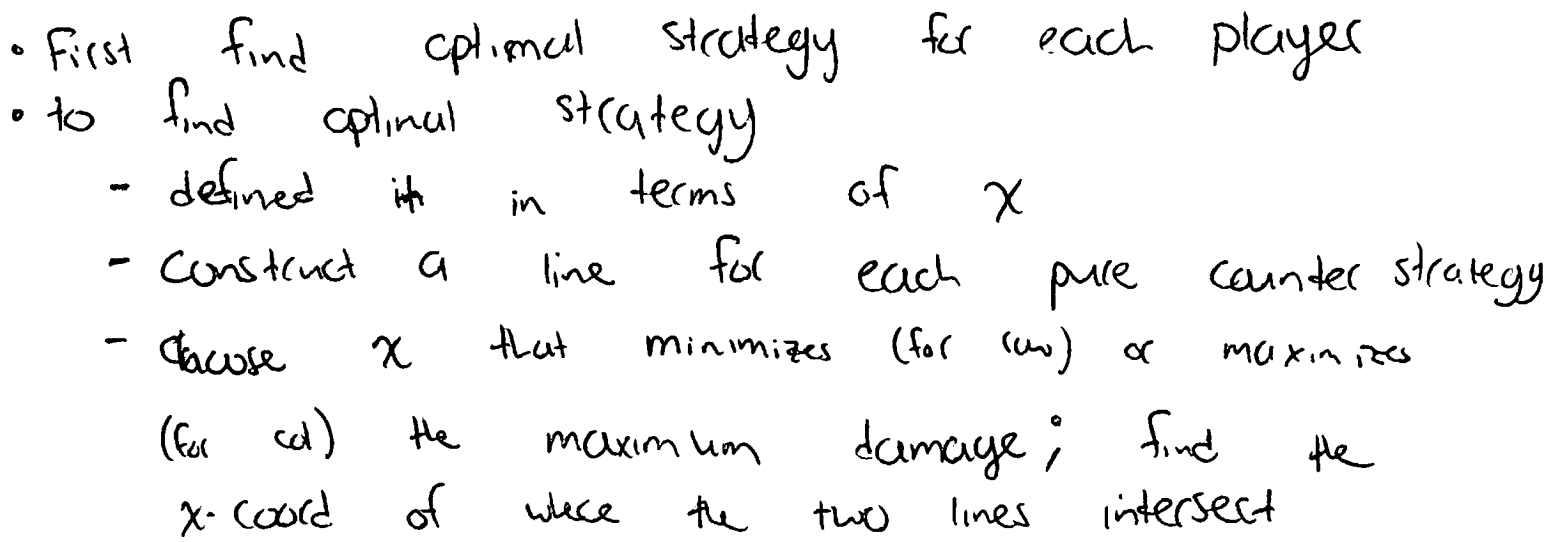 • First find optimal strategy for each player
• to find optimal strategy
- defined in terms of x
- Construct a line for each pure counter strategy
- choose x that minimizes (for row) or maximizes
(for col) the maximum damage; find the
x-coord of where the two lines intersect